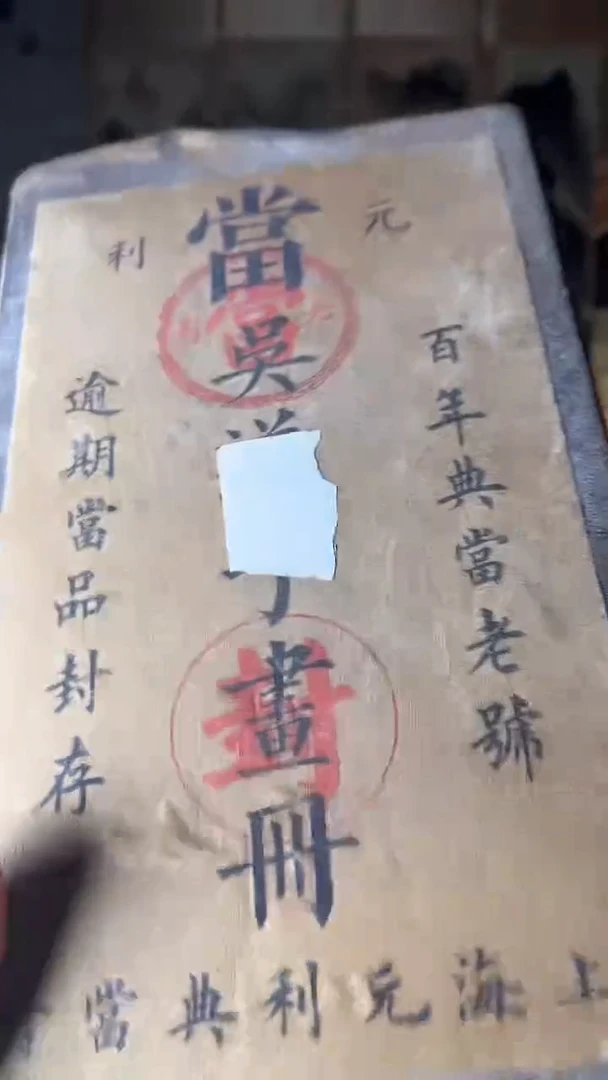 元利
百年典當老號
當吳畫冊
當
封
逾期當品封存
上海元利典當